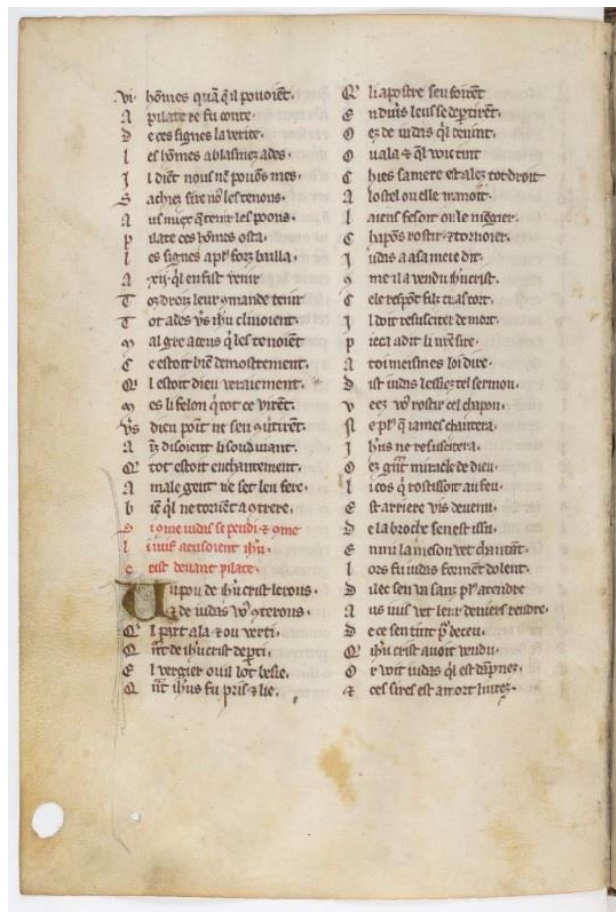 vi. hōmes quā q̄ il pouoiēt.
A pilate re fu conte.
D e ces signes la verite.
L es hōmes ablasmez ades.
I l diēt nous nē pouōs mes.
S achiez sire nꝰ les tenons.
A us miex q̄ tenir les poōns.
P ilate ces hōmes osta.
L es signes a plꝰ forz bailla.
A .xij. q̄l en fist venir
T oz droiz leur ꝯmande tenir
T ot ades vs ihū clinoient.
M al gre aceus q̄ les tenoiēt
C e estoit biē demostrement.
Q͛ l estoit dieu veraiement.
M es li felon q̄ tot ce virēt.
Vs dieu poīt ne sen ꝯūtirēt.
A īz disoient li souduiant.
Q͛ tot estoit enchantement.
A male gent ne set len fere.
B iē q̄l ne torīēt a ꝯtrere.
S i ꝯme iudas se pendi. ⁊ ꝯme
l i iuif acusoient ihū
c rist deuant pilate.
U n pou de ihū crist lerons.
⁊ de iudas vꝰ ꝯterons.
Q͛ l part ala ⁊ ou verti.
Q nt de ihū crist dep̄ti.
E l vergier ou il lot besie.
Q nt ihūs fu pris ⁊ lie.
Q͛ li apostre sen foirēt
E n diuīs leus se dep̄tirēt.
O ez de iudas q̄l deuint.
O u ala ⁊ q̄l voie tint
C hies sa mere est alez tot droit
A lostel ou elle manoit.
L aiens fesoit on le mēgier.
C hapōs rostir ⁊ tornoier.
I udas a sa meie dit.
ꝯ me il a vendu ihū crist.
C ele respōt filz tu as tort.
I l doit resusciter de mort.
P ieca a dit li vr̄e sire.
A toi meismes loi dire.
D ist iudas lessiez tel sermon.
V eez vꝰ rostir cel chapon.
N e plꝰ q̄ iames chantera.
I hūs ne resuscitera.
O ez gn̄t miracle de dieu.
L i cos q̄ rostissoit au feu.
E st arriere vis deuenu.
D e la broche sen est issu.
E nmi la meson vet chantāt.
L ors fu iudas formēt dolent.
D ilec sen va sanz plꝰ atendre
A us iuis vet leur deniers rendre.
D e ce sen tint pꝰ deceu.
Q͛ ihū crist auoit vendu.
O r voit iudas q̄l est dāpnez.
⁊ ces sires est a mort liurez.